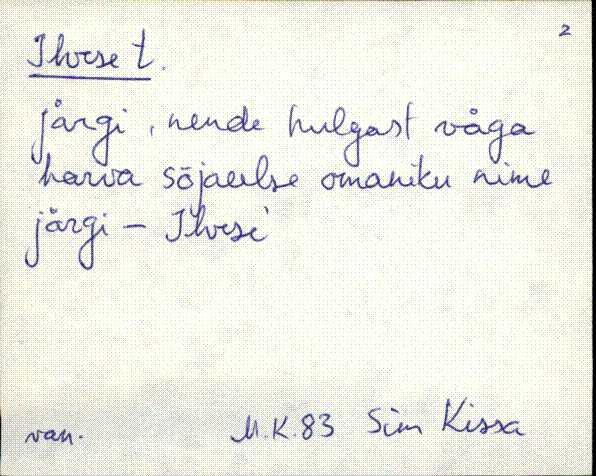 2
Ilvese t.
järgi, nende hulgast väga
harva sõjaeelse omaniku nime
järgi – Il'vese'
van. M.K.83 Sim Kissa